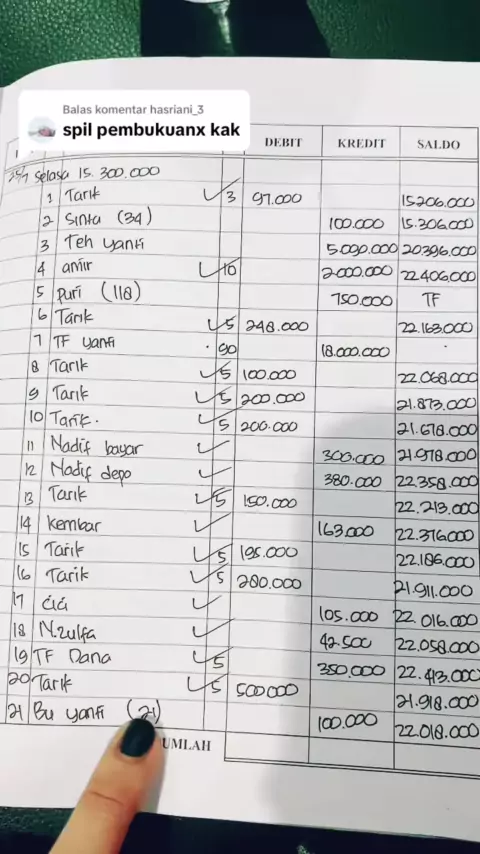 Balas komentar hasriani_3
spil pembukuanx kak
DEBIT KREDIT SALDO
25/7 Selasa 15.300.000
1 Tarik ✓ 3 97.000 15206.000
2 Sinta (34) 100.000 15.306.000
3 Teh yanti 5.090.000 20396.000
4 amir ✓ 10 2.000.000 22.406.000
5 puri (118) 750.000 TF
6 Tarik ✓ 5 248.000 22.163.000
7 TF yanti 90 18.000.000
8 Tarik ✓ 5 100.000 22.068.000
9 Tarik ✓ 5 200.000 21.873.000
10 Tarik. ✓ 5 200.000 21.678.000
11 Nadif bayar ✓ 300.000 21.978.000
12 Nadif depo ✓ 380.000 22.358.000
13 Tarik ✓ 5 150.000 22.213.000
14 kembar ✓ 163.000 22.376.000
15 Tarik ✓ 5 195.000 22.186.000
16 Tarik ✓ 5 280.000 21.911.000
17 cici ✓ 105.000 22.016.000
18 N.zulfa ✓ 42.500 22.058.000
19 TF Dana ✓ 5 350.000 22.413.000
20 Tarik ✓ 5 500000 21.918.000
21 Bu yanti (21) 100.000 22.018.000
UMLAH